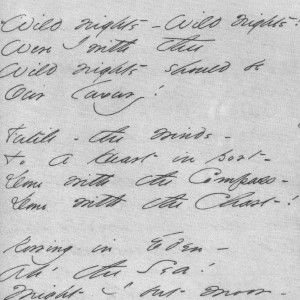 Wild nights - Wild nights!
Were I with thee
Wild nights should be
Our luxury!
Futile - the winds -
To a Heart in port -
Done with the Compass -
Done with the Chart!
Rowing in Eden -
Ah! the Sea!
Might I but moor -